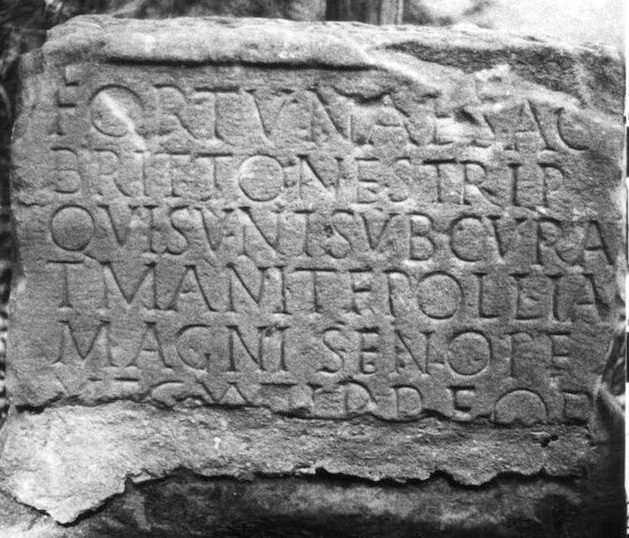 FORTVNAE SAC
BRITTONES TRIP
QVI SVNT SVB CVRA
T MANI T F POLLIA
MAGNI SENOPE